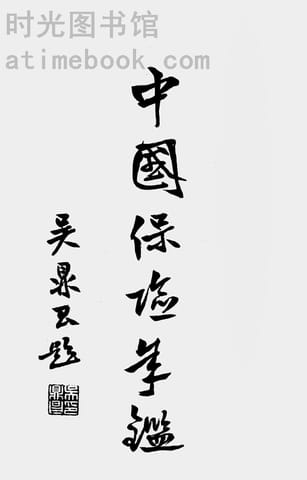 时光图书馆
atimebook.com
中國保险年鑑
吴鼎昌题
吴鼎昌